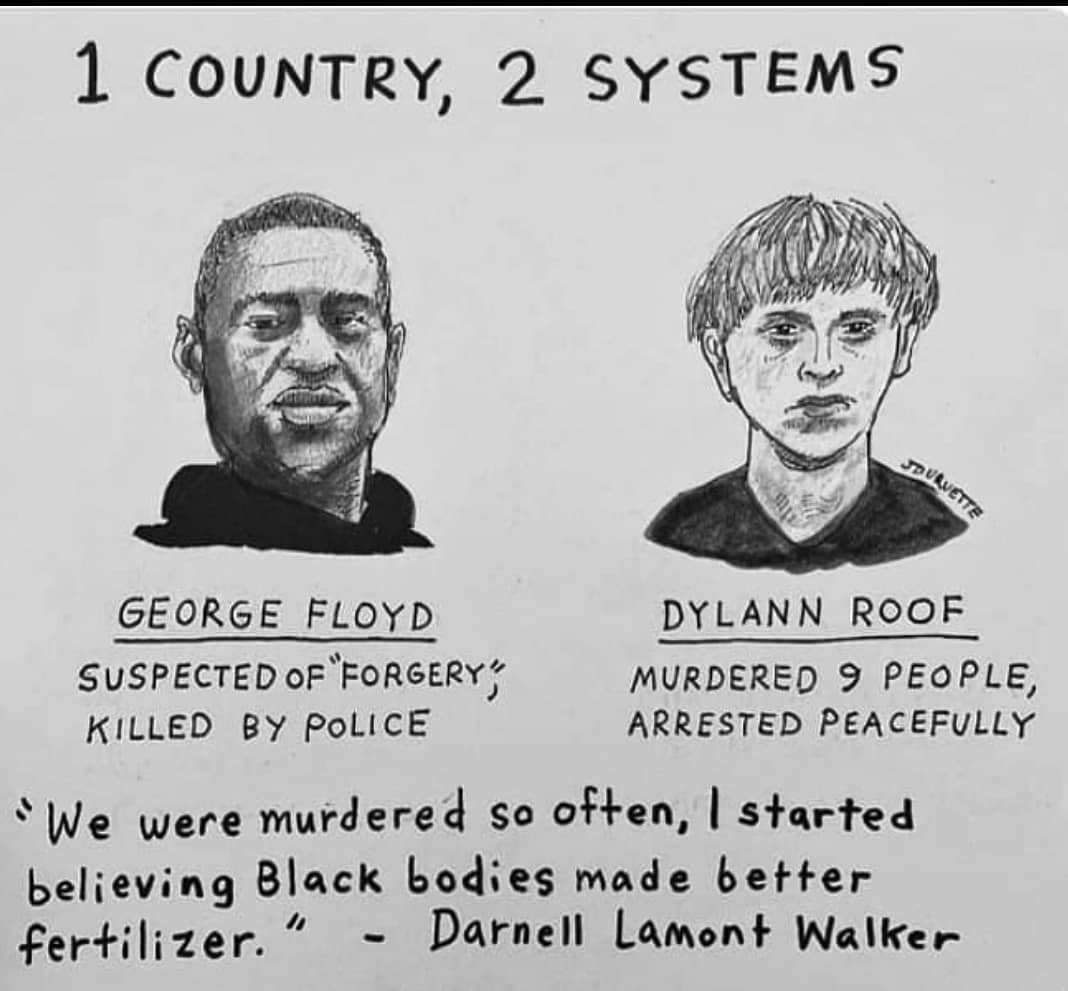 1 COUNTRY, 2 SYSTEMS
JDURUETTE
GEORGE FLOYD
SUSPECTED OF "FORGERY";
KILLED BY POLICE
DYLANN ROOF
MURDERED 9 PEOPLE,
ARRESTED PEACEFULLY
"We were murdered so often, I started
believing Black bodies made better
fertilizer." - Darnell Lamont Walker